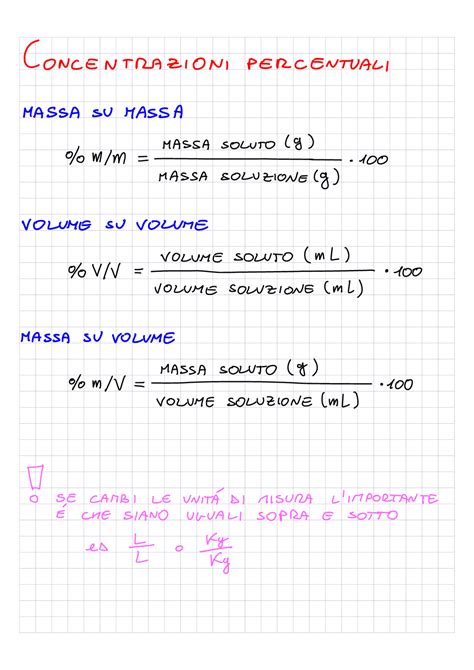 CONCENTRAZIONI PERCENTUALI
MASSA SU MASSA
% m/m = MASSA SOLUTO (g) / MASSA SOLUZIONE (g) · 100
VOLUME SU VOLUME
% V/V = VOLUME SOLUTO (mL) / VOLUME SOLUZIONE (mL) · 100
MASSA SU VOLUME
% m/V = MASSA SOLUTO (g) / VOLUME SOLUZIONE (mL) · 100
! SE CAMBI LE UNITÁ DI MISURA L'IMPORTANTE
É CHE SIANO UGUALI SOPRA E SOTTO
es L/L o Kg/Kg